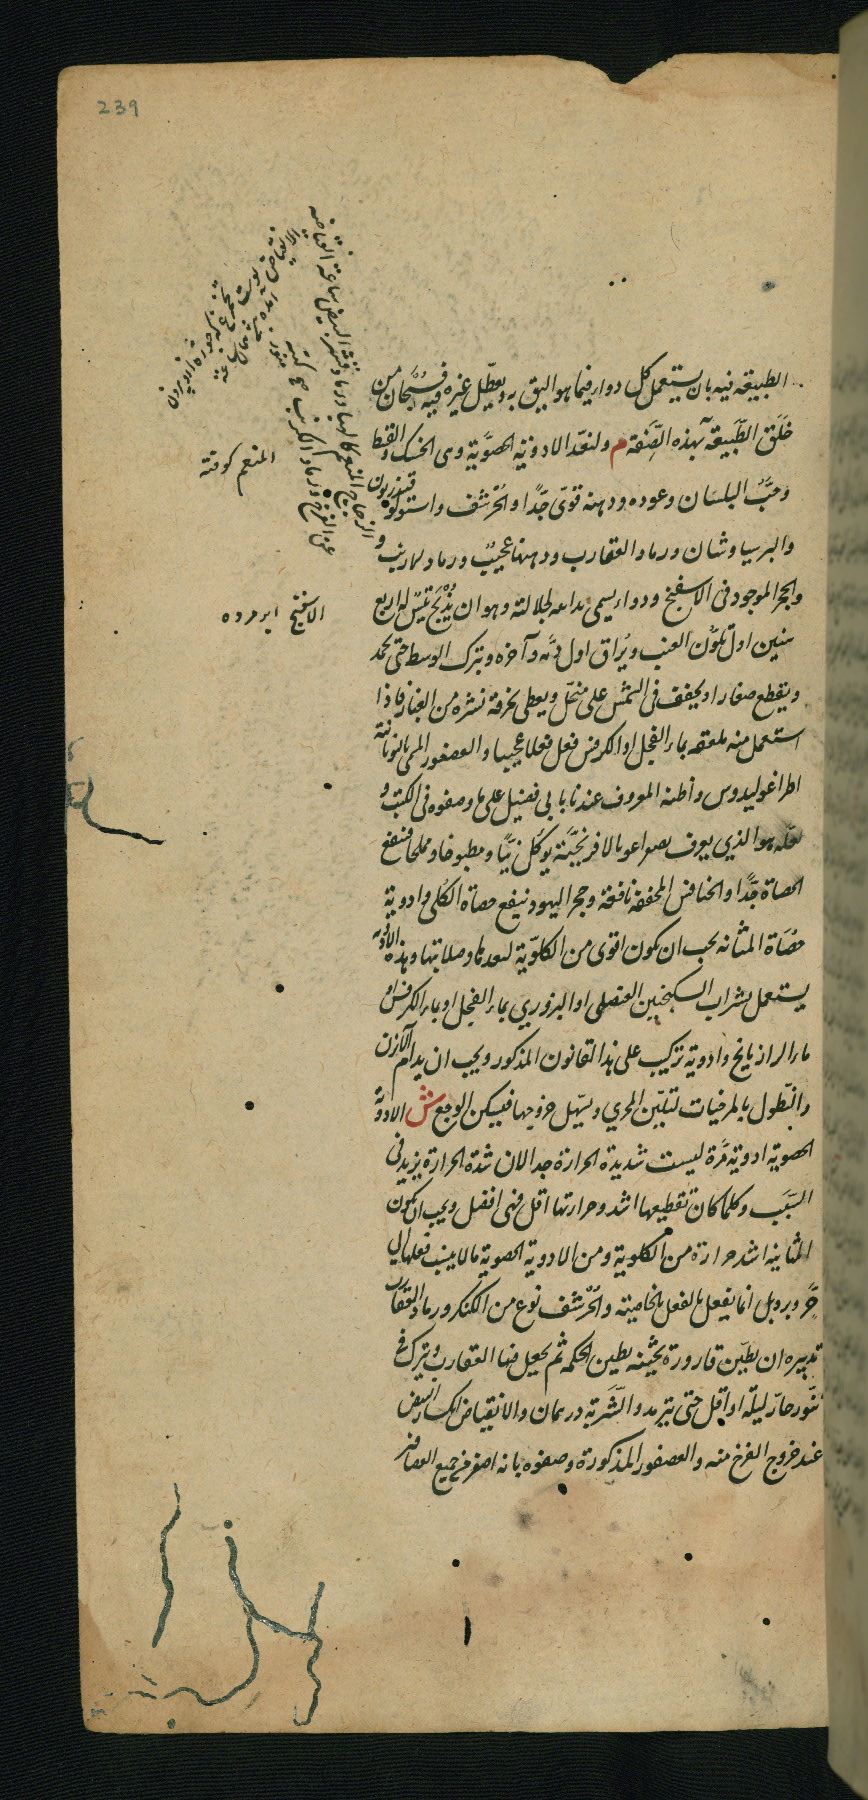 239
الطبيعه فيه بان يستعمل كل دواء فيما هو اليق به ويعطل غيره فيه فسبحان من
خلق الطبيعه بهذه الصنعه م ولنعد الادوية الحصوية وهي الخسك والقنطوريون
وحب البلسان وعوده ودهنه قوي جدا والخرشف واسقولوقندريون
والبرسياوشان ورماد العقارب ودهنها عجيب ورماد الارنب و
والحجر الموجود في الاسفنج ودواء يسمى يد الله لجلالته وهو ان يذبح تيس له اربع
سنين اول تلون العنب ويراق اول دمه وآخره ويترك الوسط حتى يجمد
ويقطع صغارا ويجفف في الشمس على منخل ويغطى بخرقة تستره من الغبار فاذا
استعمل منه ملعقه بماء الفجل او الكرفس فعل فعلا عجيبا والعصفور المسمى باليونانية
اطراغوليدوس واظنه المعروف عندنا بابي فصيل على ما وصفوه في الكتب و
لعله هو الذي يعرف بصواعو بالافرنجية يؤكل نيا ومطبوخا ومملحا فينفع
الحصاة جدا والخنافس المجففه نافعة وحجر اليهود ينفع حصاة الكلى وادوية
حصاة المثانه يجب ان يكون اقوى من الكلوية لبعدها وصلابتها وهذه الادوية
يستعمل بشراب السكنجبين العنصلي او البزوري بماء الفجل او بماء الكرفس او
ماء الرازيانج وادوية تركب على هذا القانون المذكور ويجب ان يدام الآبزن
والنطول بالمرخيات لتلين المجرى ويسهل خروجها فيسكن الوجع ش الادوية
الحصويه ادوية مرة ليست شديدة الحرارة جدا لان شدة الحرارة يزيد في
السبب وكلما كان تقطيعها اشد وحرارتها اقل فهي افضل ويجب ان يكون
المثانية اشد حرارة من الكلوية ومن الادوية الحصوية ما لا ينسب فعلها الى
حر وبرد بل انما يفعل ما يفعل بالخاصيته والخرشف نوع من الكنكر ورماد العقارب
تدبيره ان يطين قارورة ثخينه بطين الحكمه ثم يجعل فيها العقارب ويترك في
تنور حار ليلة او اقل حتى يترمد والشربة درهمان والانقياض انكسار البيض
عند خروج الفرخ منه والعصفور المذكورة وصفوه بانه اصغر من جميع العصافير
المنعم كوفته
الاسفنج ابر مرده